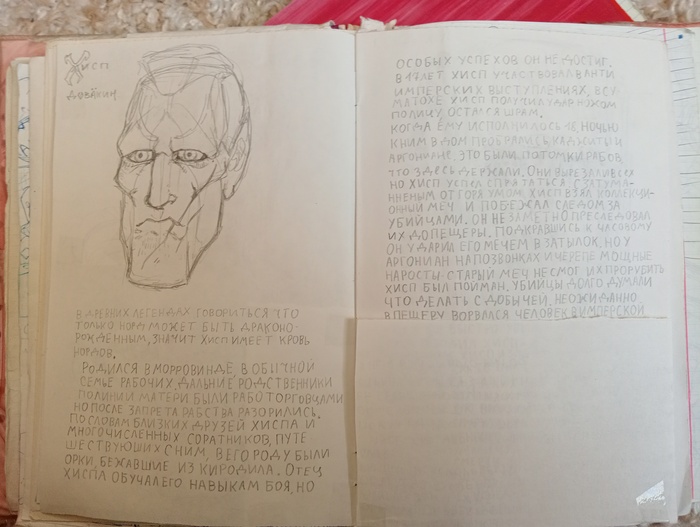 Хисп
Довакин.
В древних легендах говориться что
только норд может быть драконо-
рожденным, значит Хисп имеет кровь
нордов.
Родился в Морровинде, в обычной
семье рабочих, дальние родственники
по линии матери были работорговцами
но после запрета рабства разорились.
По словам близких друзей Хиспа и
многочисленных соратников, путе
шествующих с ним, в его роду были
орки, бежавшие из Киродила. Отец
Хиспа обучал его навыкам боя, но
особых успехов он не достиг.
В 17 лет Хисп участвовал в анти
имперских выступлениях, в су
матохе Хисп получил удар ножом
по лицу остался шрам.
Когда ему исполнилось ночью
к ним в дом пробрались каджиты и
аргониане. Это были потомки рабов,
что здесь держали. Они вырезали всех
но Хисп успел спрятаться. С затума-
ненным от горя умом, Хисп взял коллекци-
онный меч и побежал следом за
убийцами. Он незаметно преследовал
их до пещеры. Подкравшись к часовому
он ударил его мечем в затылок, но у
аргониан на позвонках и черепе мощные
наросты. Старый меч не смог их прорубить
Хисп был пойман. Убийцы долго думали
что делать с добычей, неожиданно
в пещеру ворвался человек в имперской